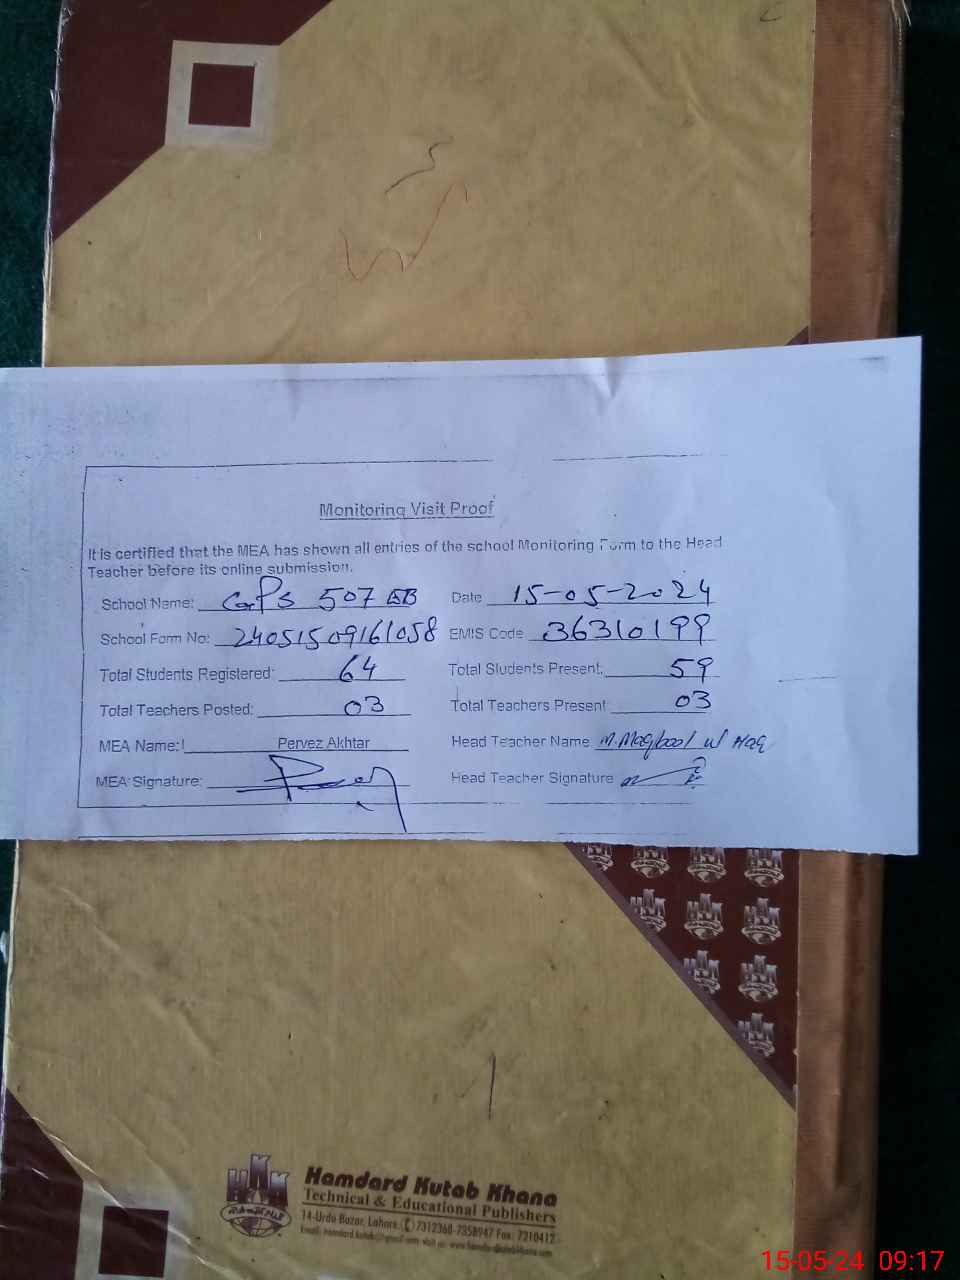 Monitoring Visit Proof
It is certified that the MEA has shown all entries of the school Monitoring Form to the Head
Teacher before its online submission.
School Name: GPS 507 EB Date 15-05-2024
School Form No: 24051509161058 EMIS Code 36310199
Total Students Registered: 64 Total Students Present: 59
Total Teachers Posted: 03 Total Teachers Present 03
MEA Name: Pervez Akhtar Head Teacher Name M. Maqbool ul Haq
MEA Signature: Head Teacher Signature
HKK
Hamdard Kutab Khana
Technical & Educational Publishers
14-Urdu Bazar, Lahore. 7312368-7358947 Fax: 7210412
15-05-24 09:17